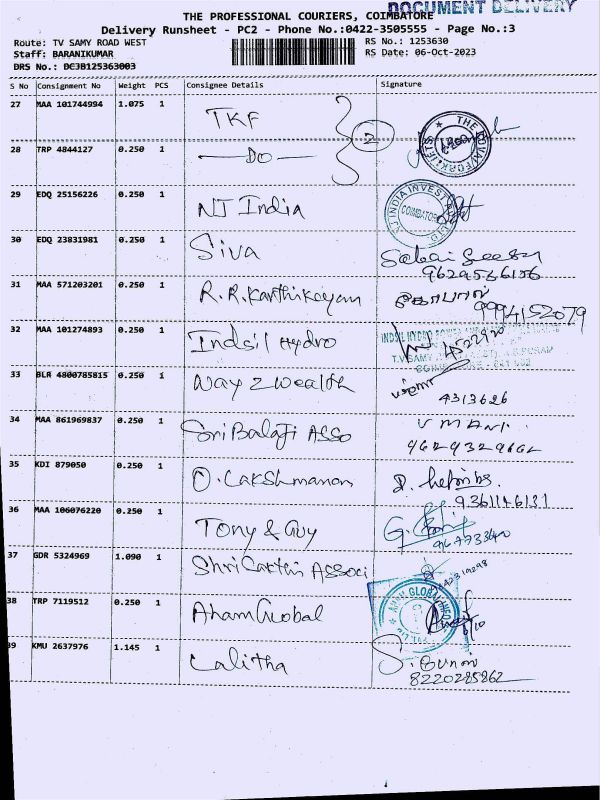 DOCUMENT DELIVERY
THE PROFESSIONAL COURIERS, COIMBATORE
Delivery Runsheet - PC2 - Phone No.:0422-3505555 - Page No.:3
Route: TV SAMY ROAD WEST RS No.: 1253630
Staff: BARANIKUMAR RS Date: 06-Oct-2023
DRS No.: DCJB125363003
S No Consignment No Weight PCS Consignee Details Signature
27 MAA 101744994 1.075 1 TKF
2
28 TRP 4844127 0.250 1 — DO —
29 EDQ 25156226 0.250 1 NJ India
30 EDQ 23831981 0.250 1 Siva
9629566156
31 MAA 571203201 0.250 1 R.R.Karthikeyan கோபால்
9994152079
32 MAA 101274893 0.250 1 Indsil Hydro
33 BLR 4800785815 0.250 1 Way 2 Wealth
4313626
34 MAA 861969837 0.250 1 Sri Balaji Asso V MANI
35 KDI 879050 0.250 1 D. Lakshmanan
9361146131
36 MAA 106076220 0.250 1 Tony & Guy
37 GDR 5324969 1.090 1 Shri Sakthi Associ
38 TRP 7119512 0.250 1 Aham Global
6/10
39 KMU 2637976 1.145 1 Lalitha
8220285862